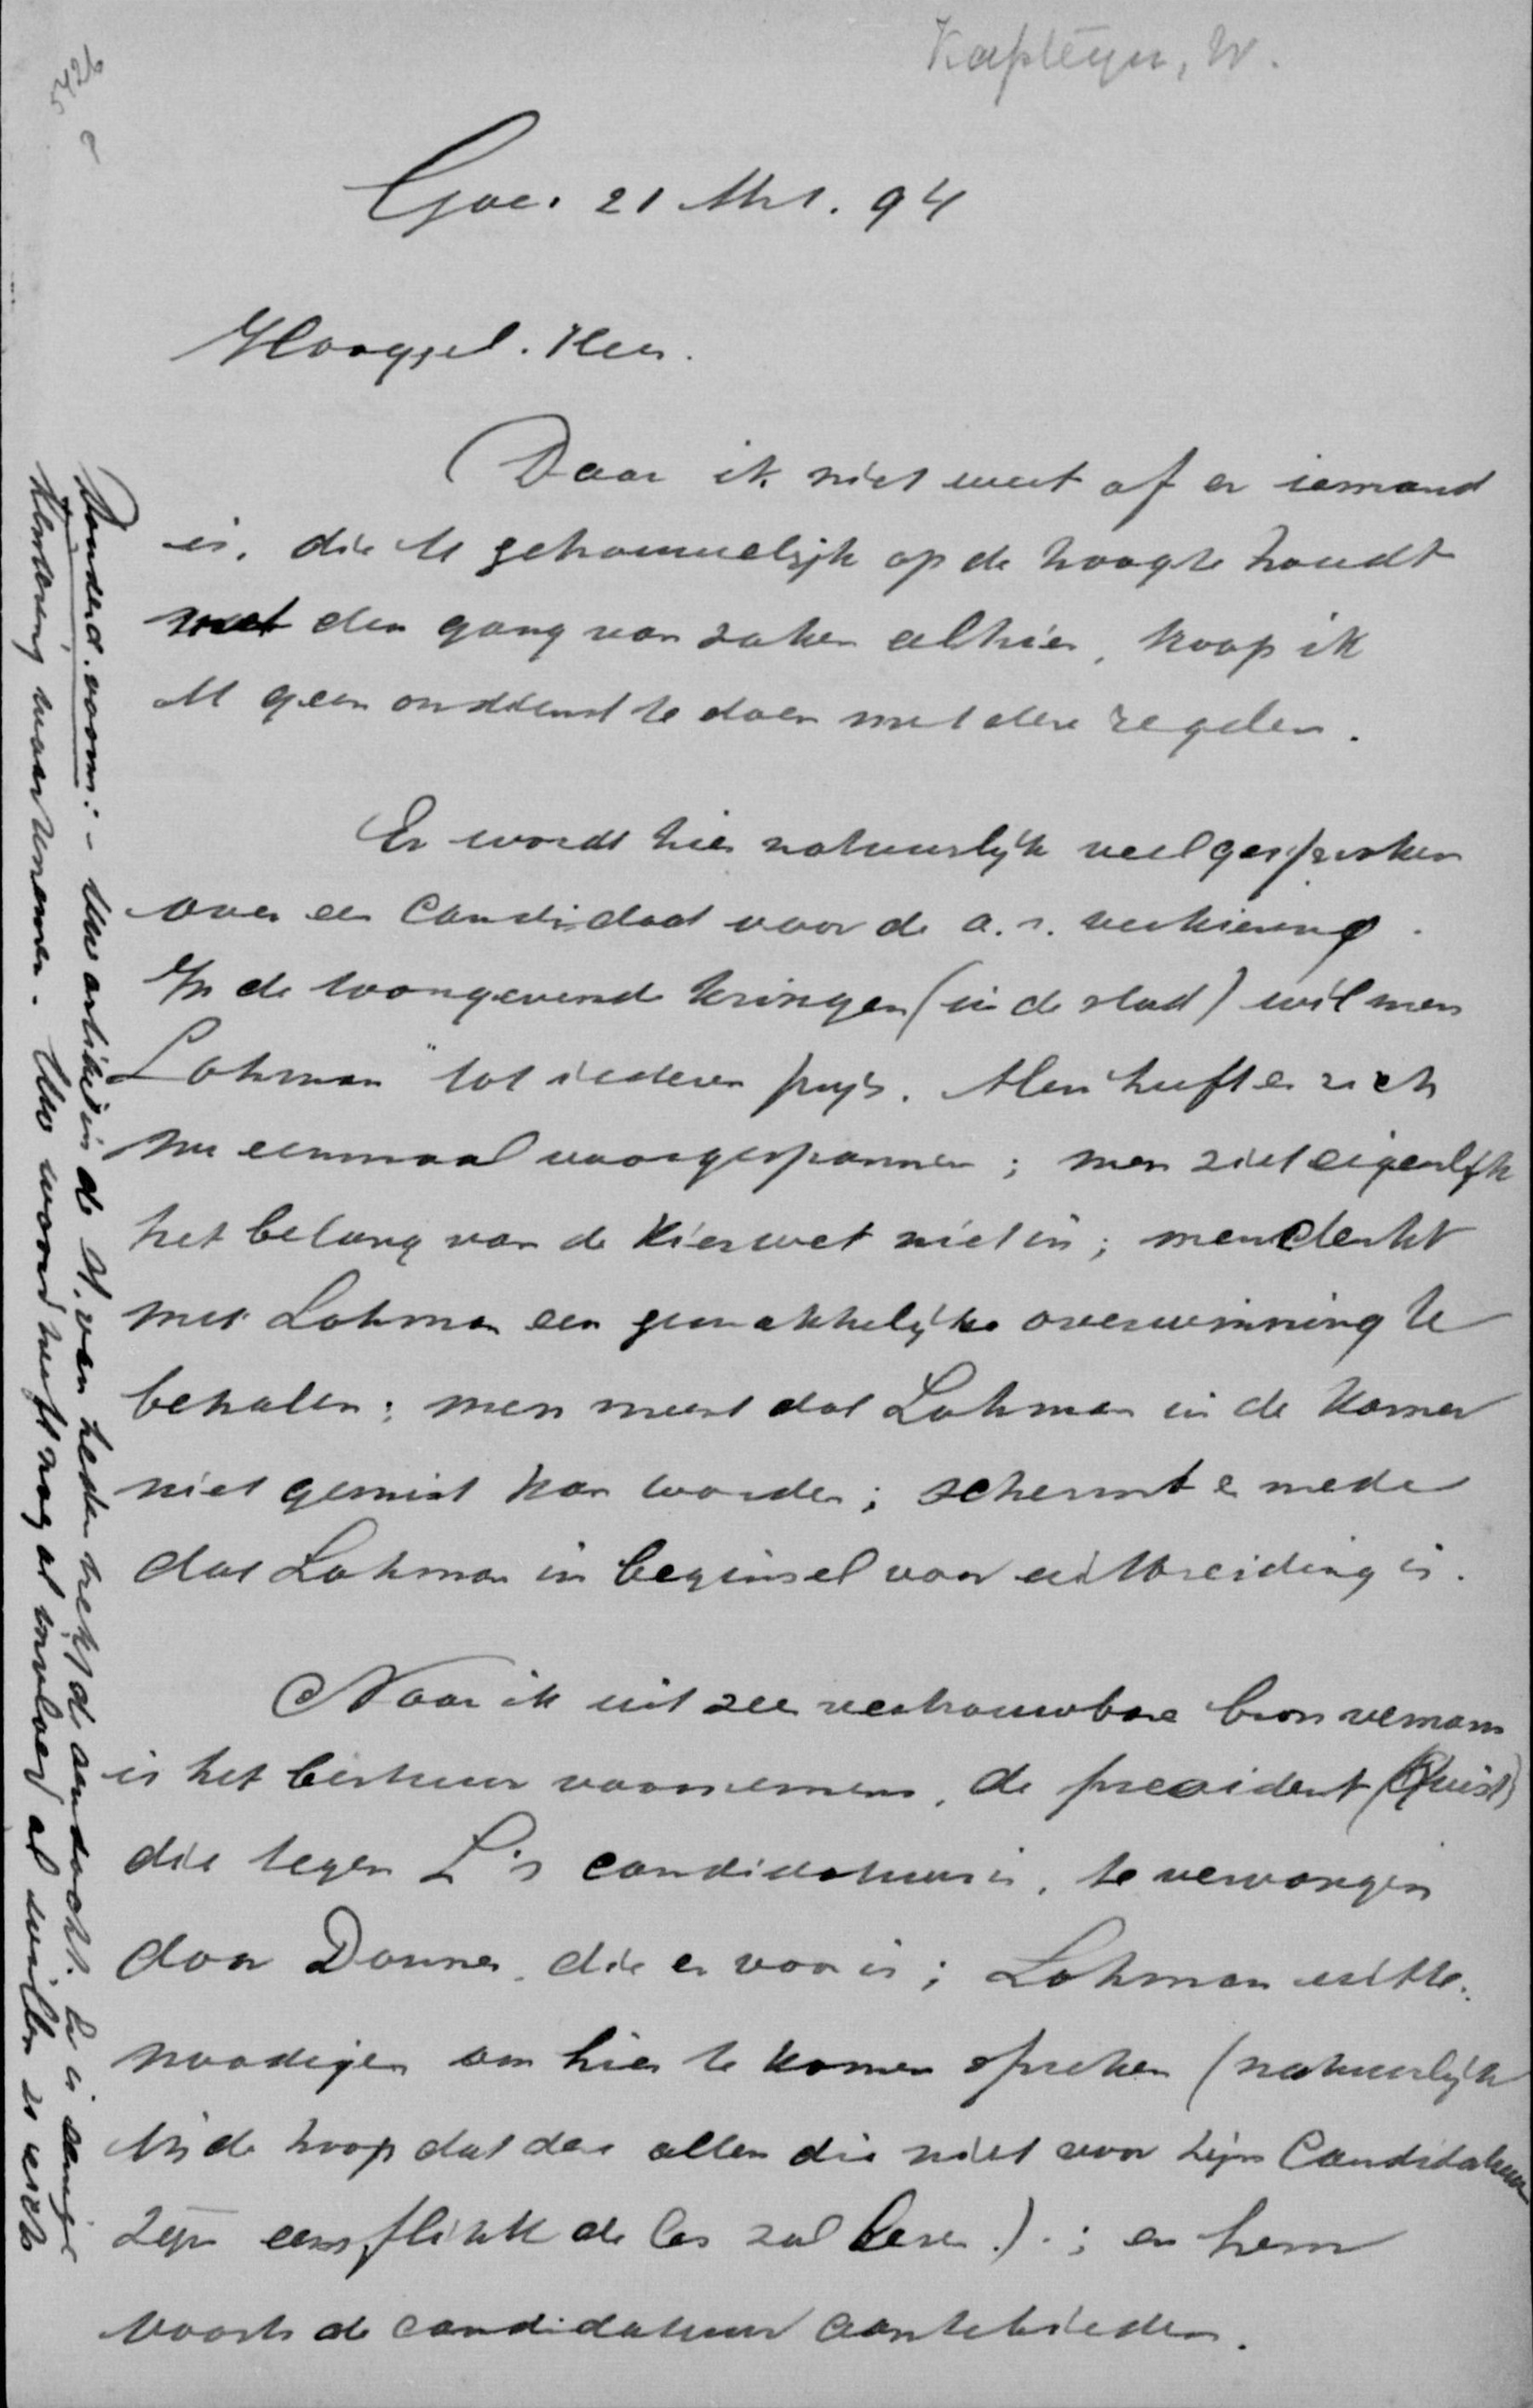 Kapteijn, W.
Goes. 21 Mrt. 94
Hooggel. Heer.
Daar ik niet weet of er iemand
is, die U getrouwelijk op de hoogte houdt
met den gang van zaken alhier, hoop ik
U geen ondienst te doen met deze regelen.
Er wordt hier natuurlijk veel gesproken
over een candidaat voor de a. s. verkiezing.
In de toongevende kringen (in de stad) wil men
Lohman "tot iederen prijs. Men heeft er zich
nu eenmaal voorgespannen; men ziet eigenlijk
het belang van de Kieswet niet in; men denkt
met Lohman een gemakkelijke overwinning te
behalen; men meent dat Lohman in de Kamer
niet gemist kan worden; schermt er mede
dat Lohman in beginsel voor uitbreiding is.
Naar ik uit zeer vertrouwbare bron vernam
is het bestuur voornemens, de president (Quist)
die tegen L's candidatuur is, te vervangen
door Donner, die er voor is; Lohman uit te
noodigen om hier te komen spreken (natuurlijk
in de hoop dat deze allen die niet voor zijn Candidatuur
zijn eens flink de les zal lezen.).; en hem
voorts de candidatuur aan te bieden.
Donderd. voorm: - Uw artikel in de St. van heden trekt de aandacht. Er is eenige
kentering waar te nemen. Uw woord heeft nog al invloed al zwillen ze